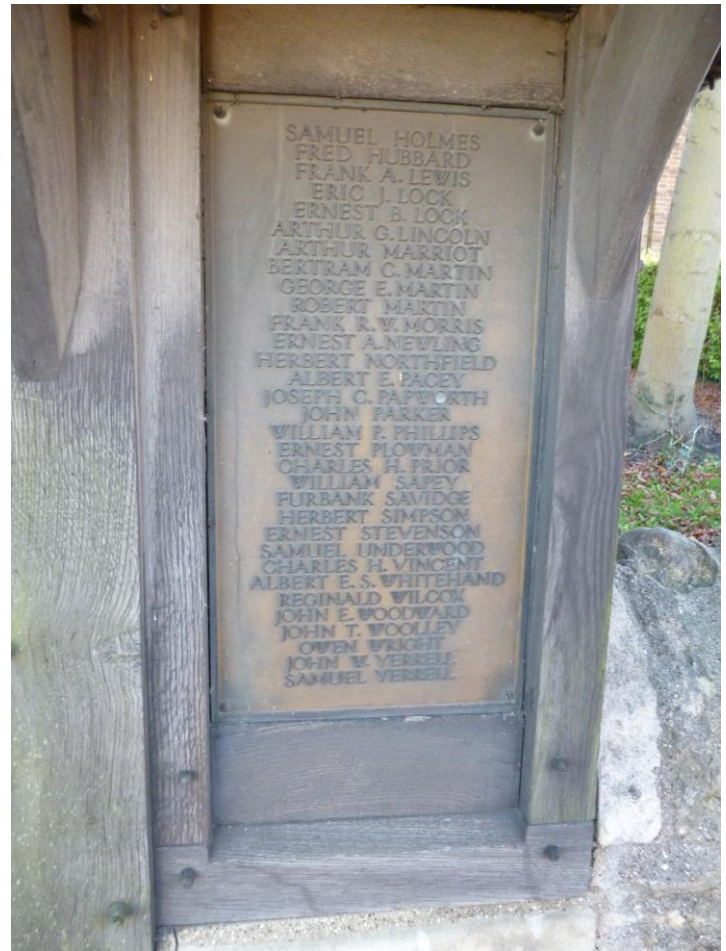 SAMUEL HOLMES
FRED HUBBARD
FRANK A. LEWIS
ERIC J. LOCK
ERNEST B. LOCK
ARTHUR G. LINCOLN
ARTHUR MARRIOT
BERTRAM C. MARTIN
GEORGE E. MARTIN
ROBERT MARTIN
FRANK R. W. MORRIS
ERNEST A. NEWLING
HERBERT NORTHFIELD
ALBERT E. PACEY
JOSEPH C. PAPWORTH
JOHN PARKER
WILLIAM P. PHILLIPS
ERNEST PLOWMAN
CHARLES H. PRIOR
WILLIAM SAPEY
FURBANK SAVIDGE
HERBERT SIMPSON
ERNEST STEVENSON
SAMUEL UNDERWOOD
CHARLES H. VINCENT
ALBERT E. S. WHITEHAND
REGINALD WILCOX
JOHN E. WOODWARD
JOHN T. WOOLLEY
OWEN WRIGHT
JOHN W. YERRELL
SAMUEL YERRELL